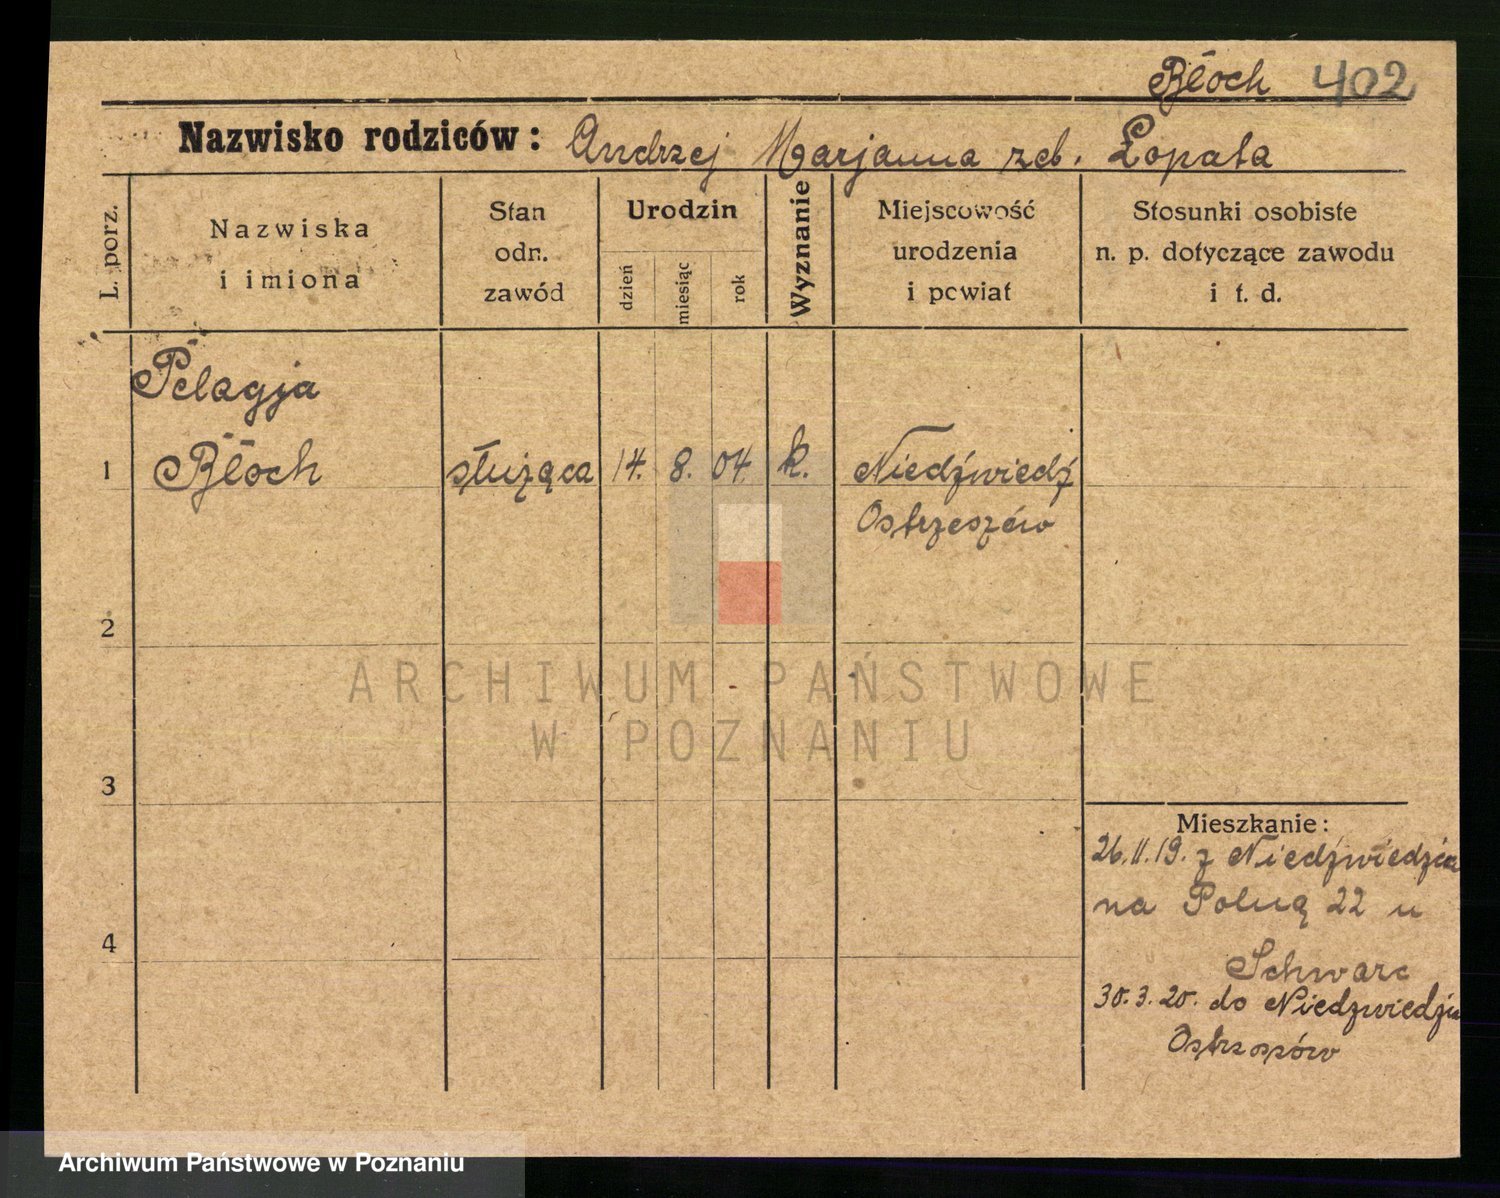 Błoch 402
Nazwisko rodziców: Andrzej Marjanna zeb. Łopata
L. porz.
Nazwiska
i imiona
Stan
odn.
zawód
Urodzin
dzień
miesiąc
rok
Wyznanie
Miejscowość
urodzenia
i powiat
Stosunki osobiste
n. p. dotyczące zawodu
i t. d.
Pelagja
1 Błoch służąca 14. 8. 04. k. Niedźwiedź
Ostrzeszów
2
ARCHIWUM PAŃSTWOWE
W POZNANIU
3
Mieszkanie:
26.11.19. z Niedźwiedzia
na Polną 22 u
4
Schwarc
30.3.20. do Niedzwiedzia
Ostrzeszów
Archiwum Państwowe w Poznaniu